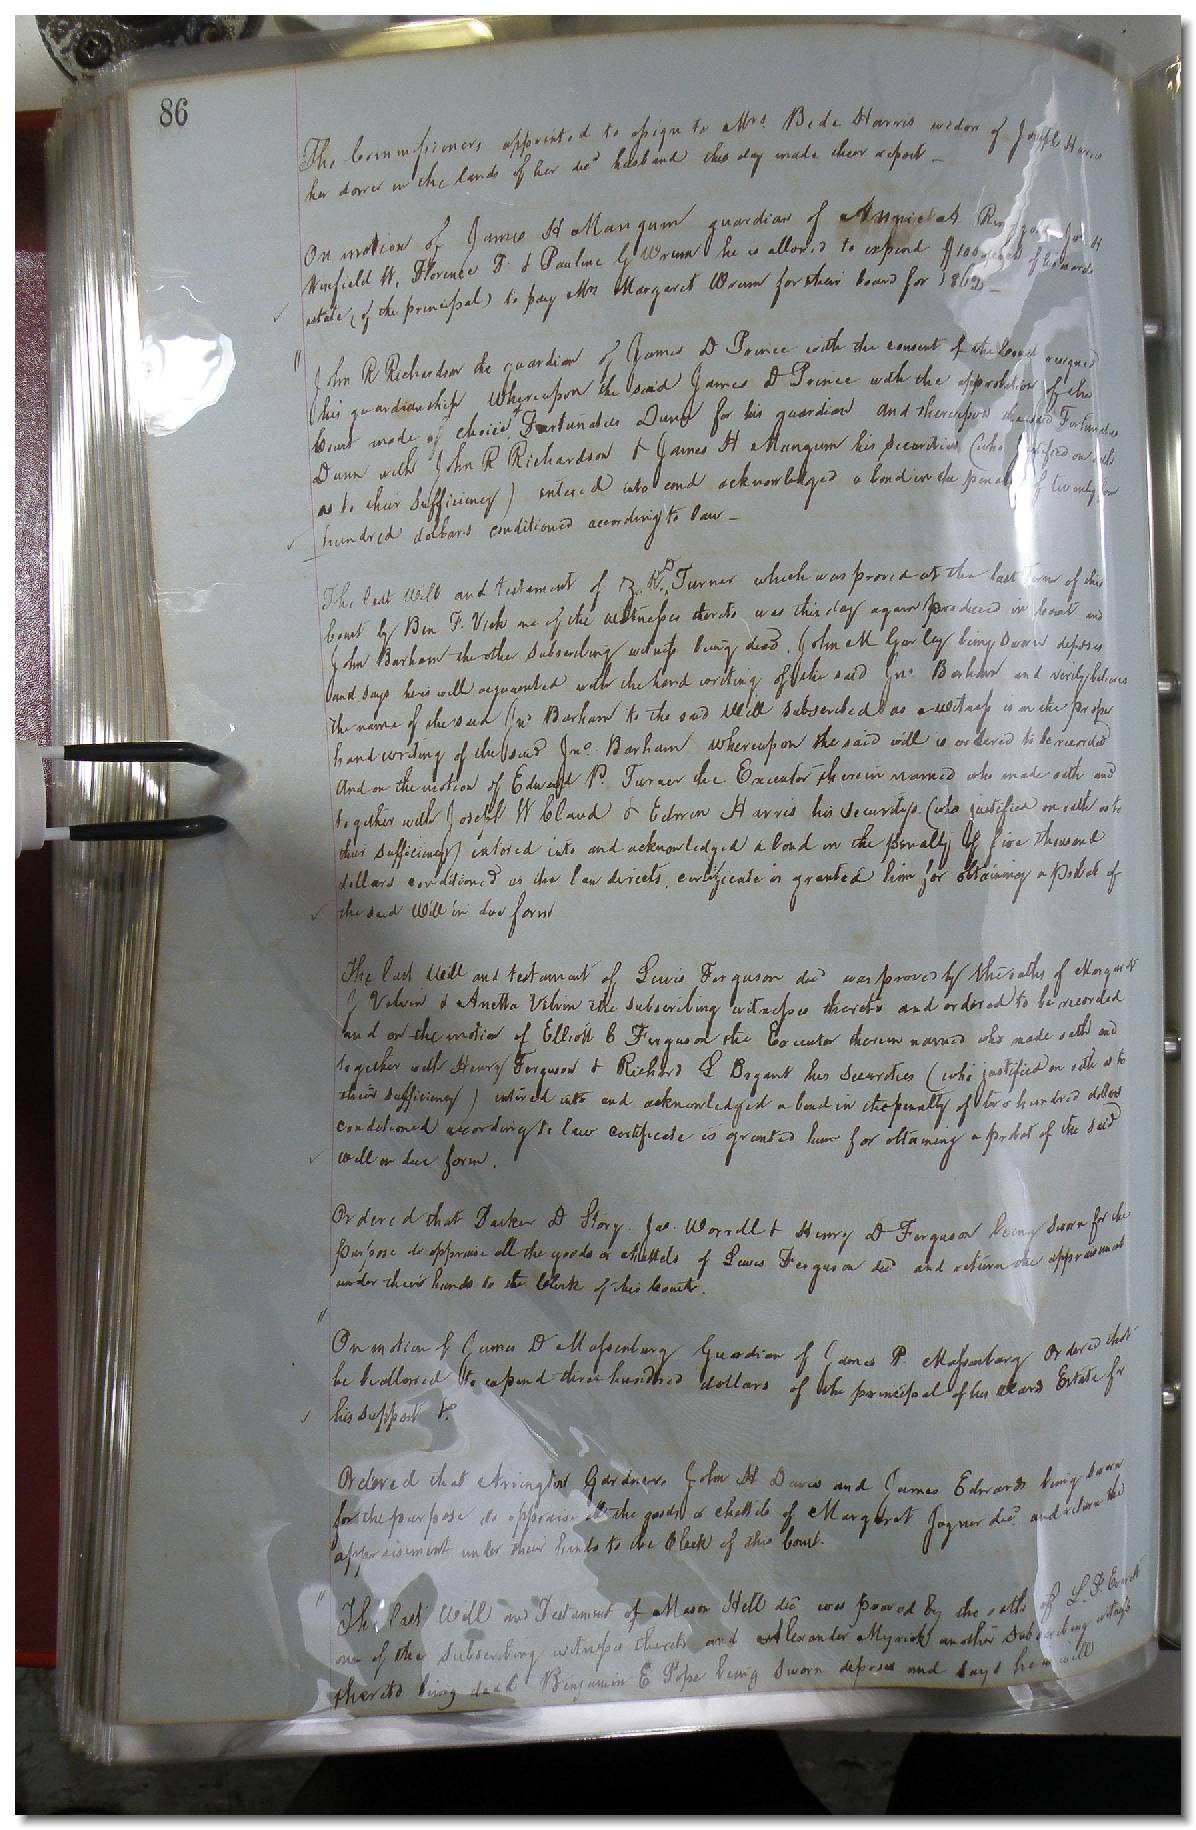 86
The Commissioners appointed to assign to Mrs. Bede Harris widow of Joseph Harris
her dower in the lands of her decd husband this day made their report
On motion of James H Mangum guardian of
Winfield W, Florence F. & Pauline G Wrenn he is allowed to expend $100 of his wards
estate (of the principal) to pay Mrs Margaret Wrenn for their board for 1862
John R Richardson the guardian of James D Prince with the consent of the Court resigned
his guardianship Whereupon the said James D Prince with the approbation of the
Court made choice of Fortunatus Dunn for his guardian and thereupon the said Fortunatus
Dunn with John R Richardson & James H Mangum his securities (who justified on oath
as to their sufficiency) entered into and acknowledged a bond in the penalty of twenty
hundred dollars conditioned according to law
The last Will and testament of Turner which was proved at the last term of this
Court by Ben F. Vick one of the witnesses thereto was this day again produced in Court and
John Barham the other subscribing witness being dead, John M Gurley being sworn deposes
and says he is well acquainted with the hand writing of the said Jno. Barham and verily believes
the name of the said Jno. Barham to the said Will subscribed as a witness is in the proper
hand writing of the said Jno. Barham whereupon the said will is ordered to be recorded
And on the motion of Edward P. Turner the Executor therein named who made oath and
together with Joseph W Claud & Edwin Harris his securitys (who justified on oath as to
their sufficiency) entered into and acknowledged a bond in the penalty of five thousand
dollars conditioned as the law directs, certificate is granted him for obtaining a probat of
the said Will in due form
The last Will and testament of Lewis Ferguson decd was proved by the oaths of Margaret
J Velvin & Anetta Velvin the subscribing witnesses thereto and ordered to be recorded
And on the motion of Elliott C Ferguson the Executor therein named who made oath and
together with Henry Ferguson & Richard G Bryant his securities (who justified on oath as to
their sufficiency) entered into and acknowledged a bond in the penalty of two hundred dollars
conditioned according to law certificate is granted him for obtaining a probat of the said
will in due form.
Ordered that Parker D Story Jas. Worrell & Henry D Ferguson being sworn for the
purpose do appraise all the goods & chattels of Lewis Ferguson decd and return the appraisement
under their hands to the Clerk of this Court.
On motion of James D Massenburg Guardian of James P. Massenburg Ordered that
he be allowed to expend three hundred dollars of the principal of his wards Estate for
his support &c
Ordered that Arrington Gardner, John H Davis and James Edwards being sworn
for the purpose do appraise all the goods & chattels of Margaret Joyner decd and return the
appraisement under their hands to the Clerk of this Court.
The last Will and Testament of Mason Hill decd was proved by the oath of
one of the subscribing witnesses thereto and Alexander Myrick another subscribing witness
thereto being dead Benjamin E Pope being sworn deposes and says he is well